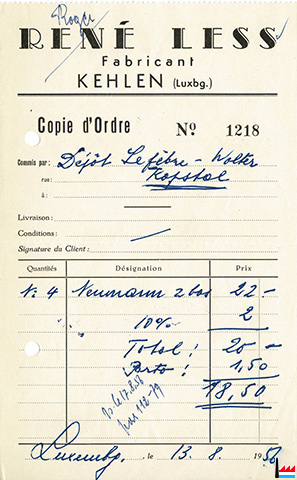 Roger
RENÉ LESS
Fabricant
KEHLEN (Luxbg.)
Copie d'Ordre Nº 1218
Commis par: Dépôt Lefèbre - Wolter
rue: Kopstal
à
Livraison:
Conditions:
Signature du Client:
Quantités Désignation Prix
No 4 Neumann 2 bas 22 -
10% 2
Total: 20 -
Porto: 1,50
18,50
le 17.8.58
Luxembg. le 13. 8. 1956